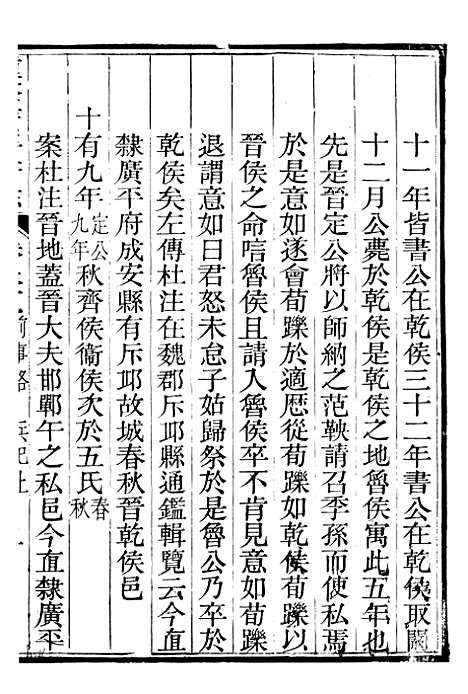 十一年皆書公在乾侯三十二年書公在乾侯取闞
十二月公薨於乾侯是乾侯之地魯侯寓此五年也
先是晉定公將以師納之范鞅請召季孫而使私焉
於是意如遂會荀躒於適歴從荀躒如乾侯荀躒以
晉侯之命唁魯侯且請入魯侯卒不肯見意如荀躒
退謂意如曰君怒未怠子姑歸祭於是魯公乃卒於
乾侯矣左傳杜注在魏郡斥邱縣通鑑輯覽云今直
隸廣平府成安縣有斥邱故城春秋晉乾侯邑
十有九年定公九年秋齊侯衞侯次於五氏春秋
案杜注晉地蓋晉大夫邯鄲午之私邑今直隸廣平
前事略 兵紀上